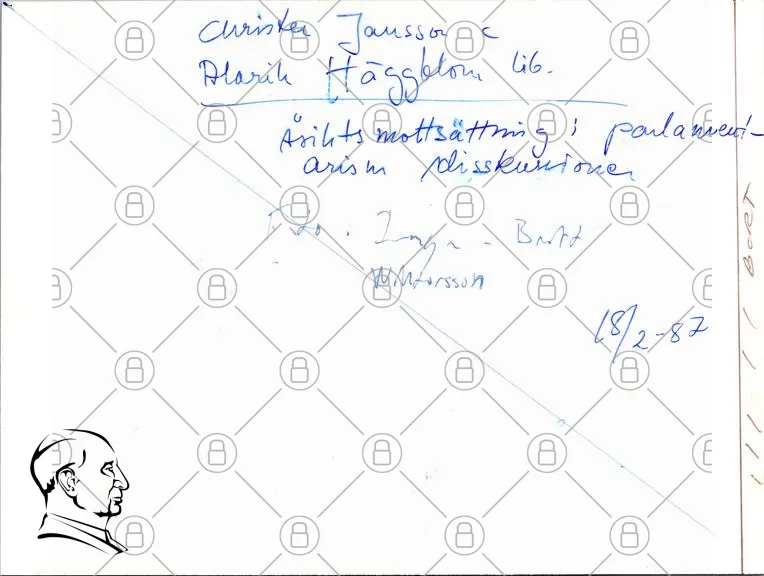 Christer Jansson c
Alarik Häggblom lib.
Åsiktsmottsättning i parlament-
arism disskusionen
Foto. Inga-Britt
Wiktorsson
18/2-87
BORT